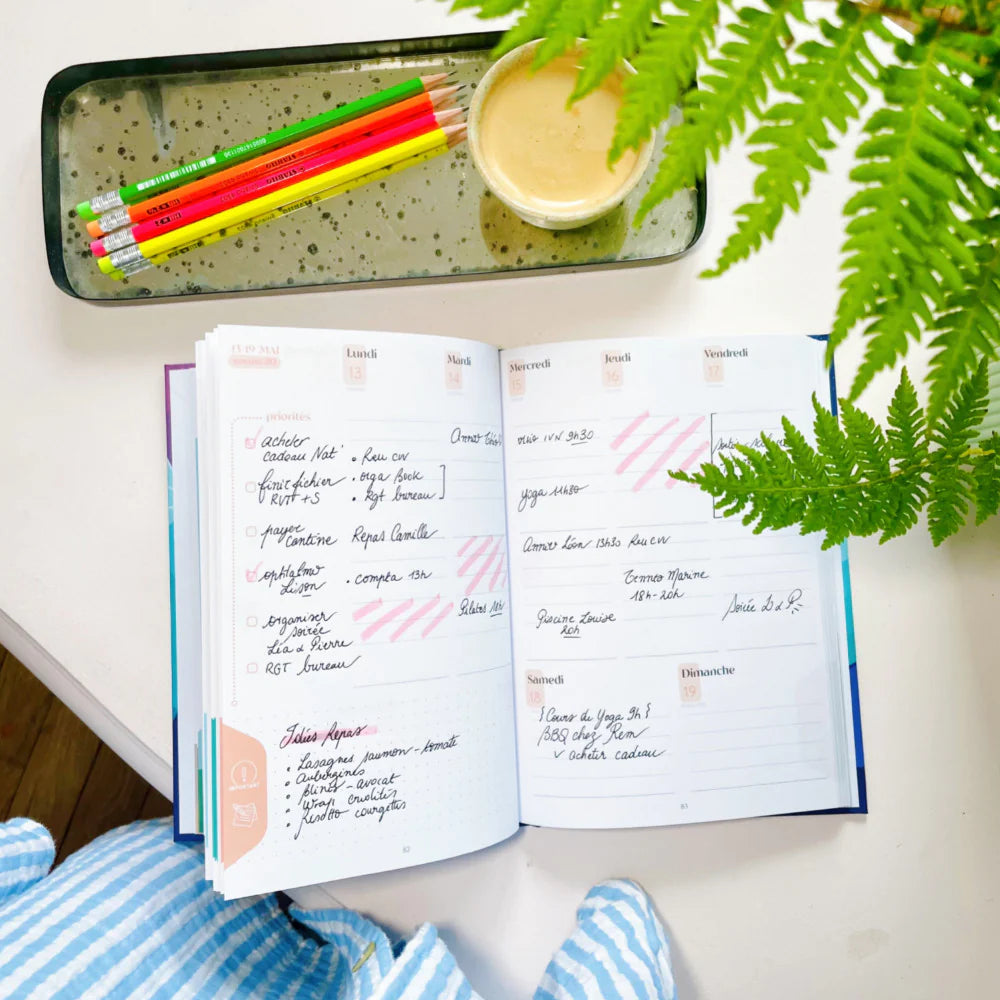 13-19 MAI
Lundi
13
Mardi
14
priorités
acheter
cadeau Nat'
finir fichier
RVTT + S
payer
cantine
ophtalmo
Lison
organiser
soirée
Léa & Pierre
RGT bureau
• Reu CW
• orga Book
• Rgt bureau
Repas Camille
• compta 13h
Anniv
Pilates 18h
Idées Repas
• Lasagnes saumon - tomate
• Aubergines
• Blinis - avocat
• Wrap crudités
• Risotto courgettes
IMPORTANT
82
Mercredi
15
Jeudi
16
Vendredi
17
visio IVN 9h30
yoga 11h30
Anniv Léon 13h30
Reu CW
Tennis Marine
18h-20h
Piscine Louise
20h
Soirée L & P
Samedi
18
Dimanche
19
{Cours de Yoga 9h}
BBQ chez Rem
v acheter cadeau
83
STABILO